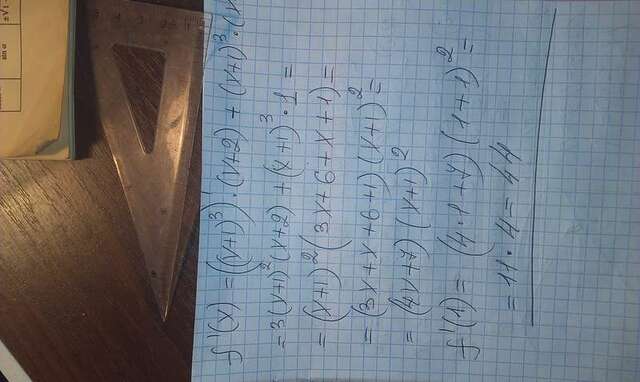 f'(x) = ((x+1)³)'·(x+2) + (x+1)³·(x
= 3(x+1)²(x+2) + (x+1)³·1 =
= (x+1)²(3x+6+x+1) =
= (3x+x+6+1)(x+1)² =
= (4x+7)(x+1)²
f'(1) = (4·1+7)(1+1)² =
= 11·4 = 44